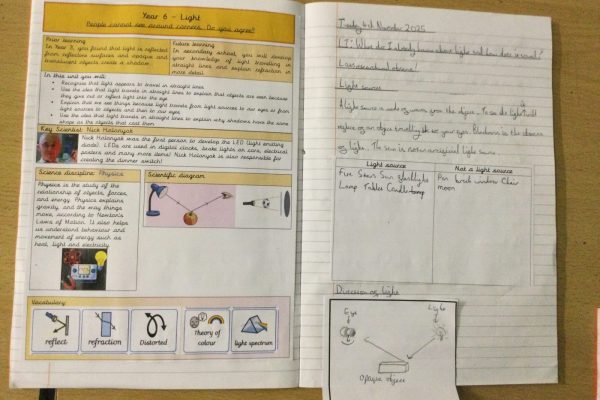 Year 6 - Light
People cannot see around corners. Do you agree?
Prior learning
In Year 3, you found that light is reflected
from reflective surfaces and opaque and
translucent objects create a shadow.
Future learning
In secondary school, you will develop
your knowledge of light travelling in
straight lines and explain refraction in
more detail.
In this unit you will:
Recognise that light appears to travel in straight lines
Use the idea that light travels in straight lines to explain that objects are seen because
they give out or reflect light into the eye
Explain that we see things because light travels from light sources to our eyes or from
light sources to objects and then to our eyes
Use the idea that light travels in straight lines to explain why shadows have the same
shape as the objects that cast them
Key Scientist: Nick Holonyak
Nick Holonyak was the first person to develop the LED (light emitting
diode). LEDs are used in digital clocks, brake lights on cars, electrical
posters and many more items! Nick Holonyak is also responsible for
creating the dimmer switch!
Science discipline: Physics
Physics is the study of the
relationship of objects, forces,
and energy. Physics explains
gravity, and the way things
move, according to Newton's
Laws of Motion. It also helps
us understand behaviour and
movement of energy such as
heat, light and electricity.
Scientific diagram
Vocabulary
reflect
refraction
Distorted
Theory of
colour
light spectrum
November 2025
LI: What do I already know about light and how does it travel?
Light sources
A light source
of light. The sun is
light source
Light source
Not a light source
Fire Stars Sun
Pen
window Chair
Lamp
moon
Direction of light
Eye
Light
Opaque object